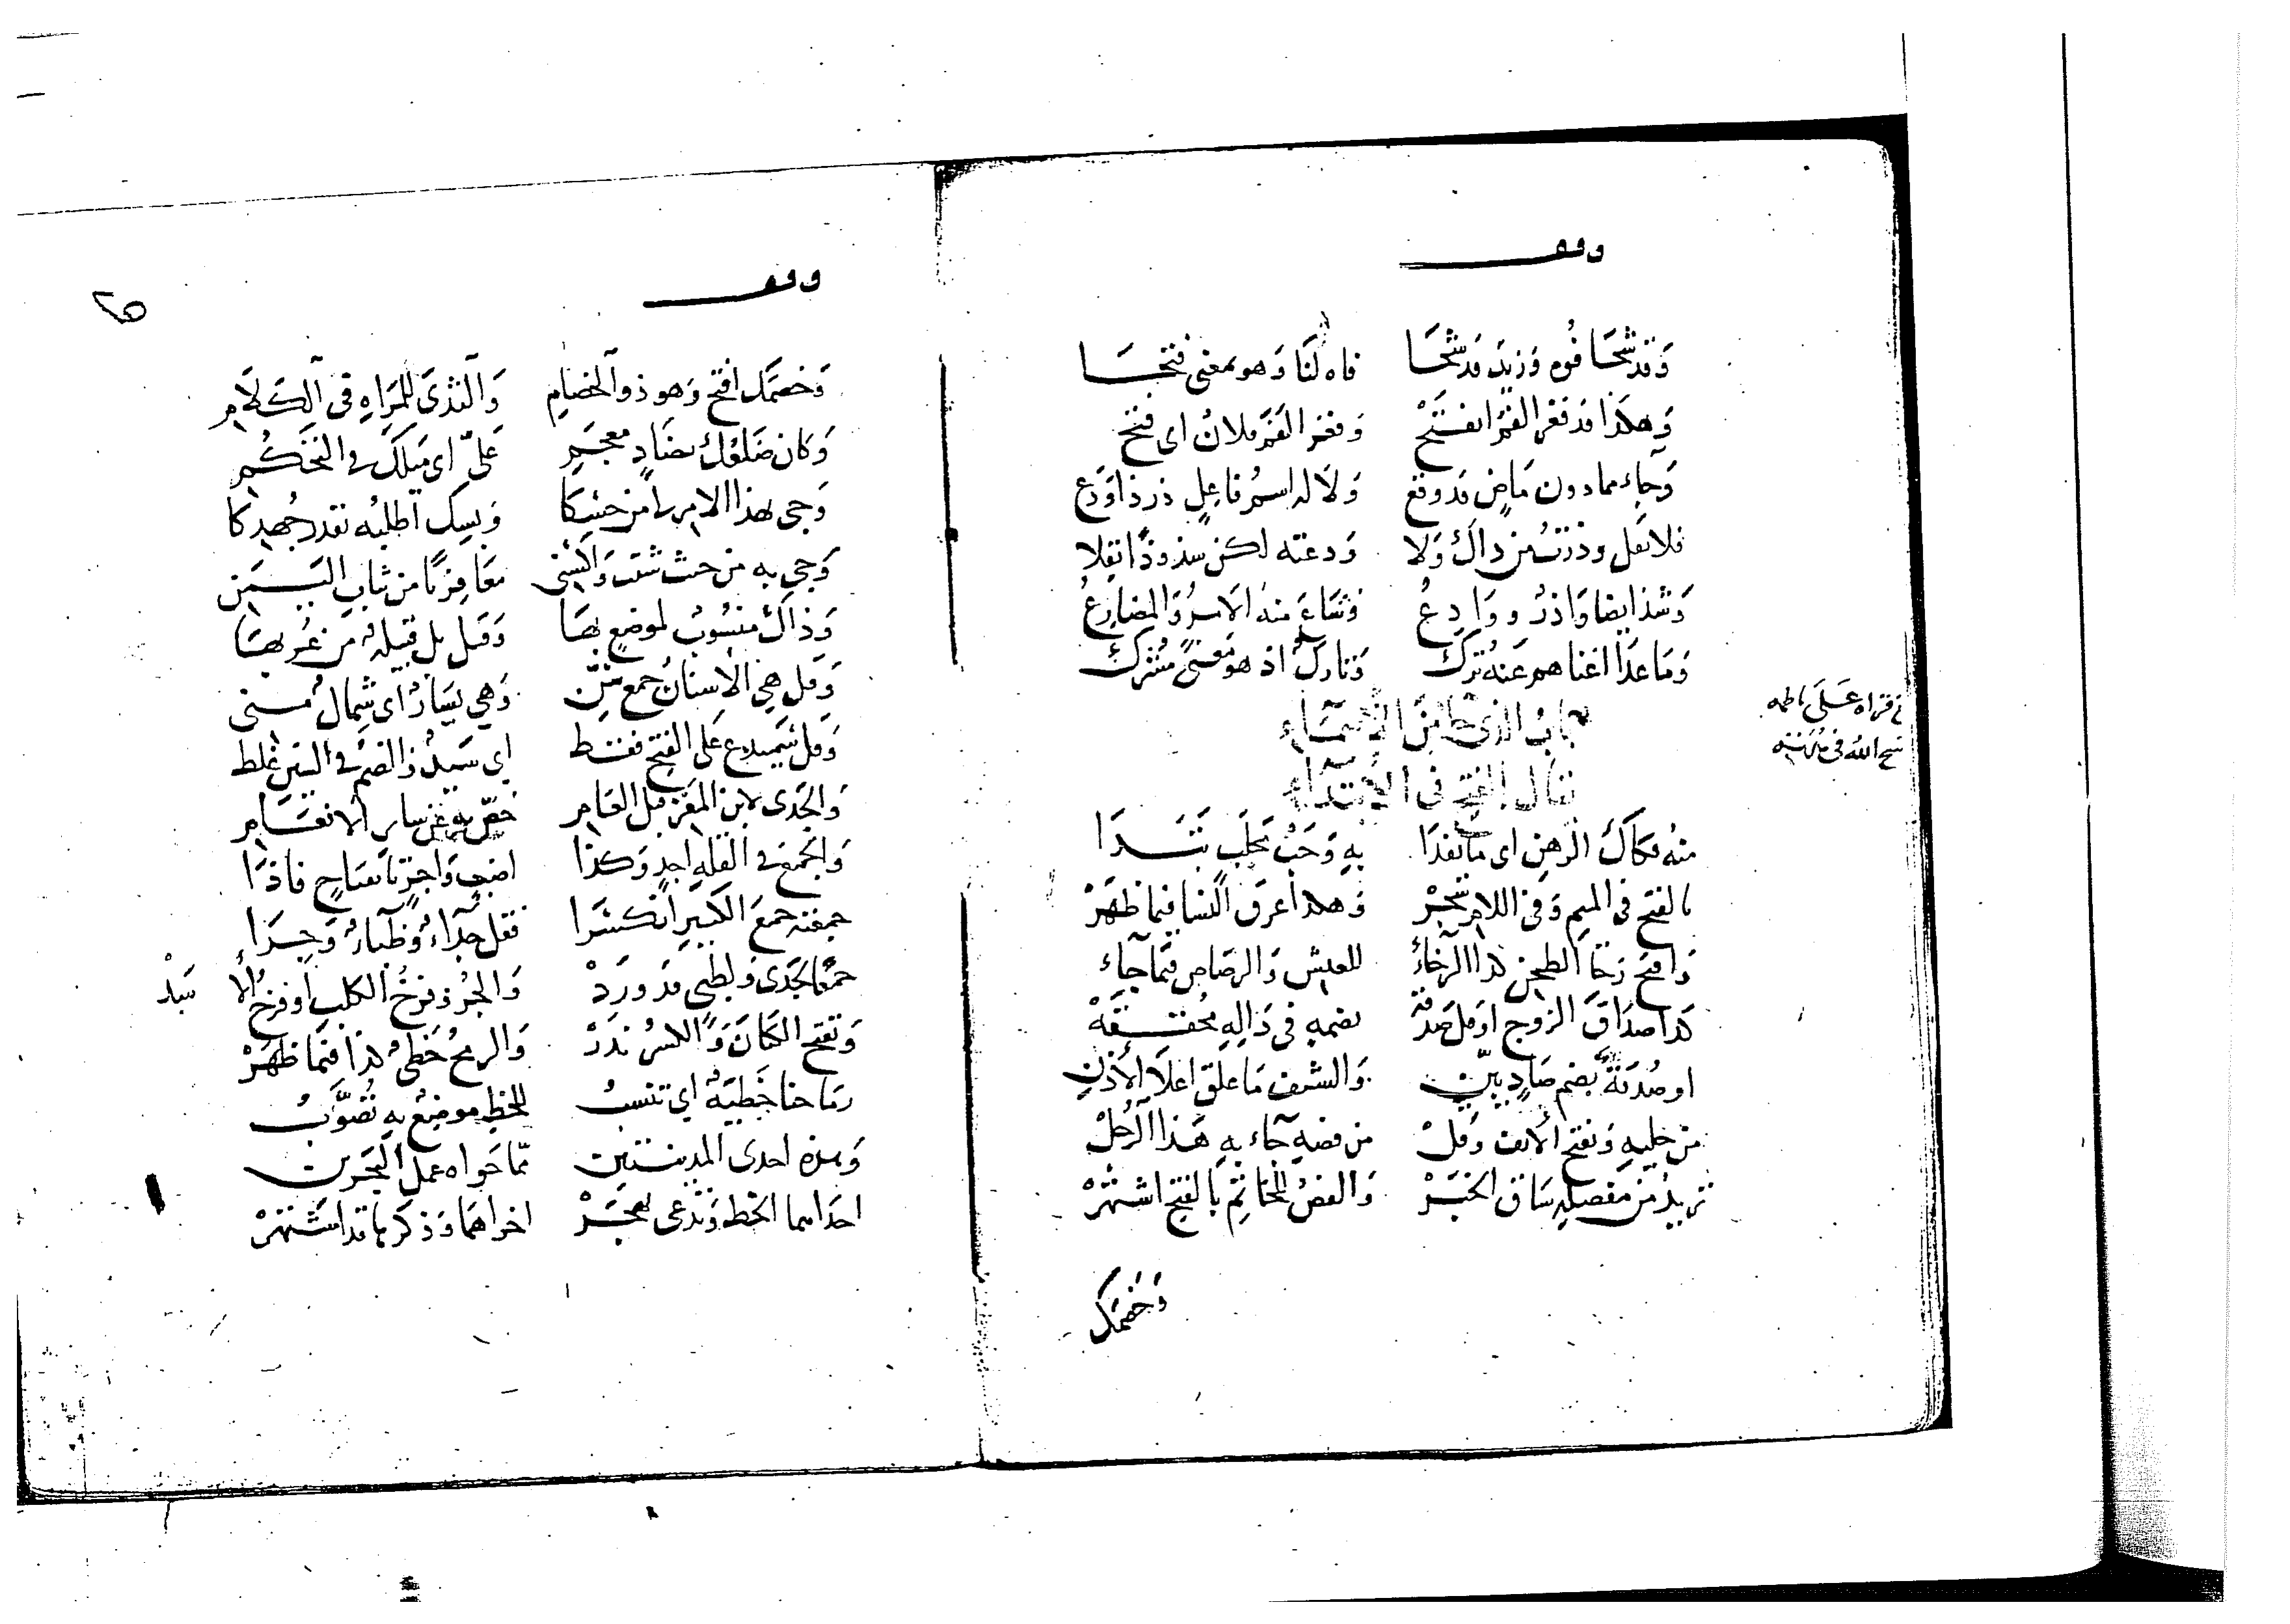 وقف
وَقَد شَحَا فُوه وَزيدٌ قَد شَحَا فاه لَنَا وَهو بمعنى فتحَا
وَهكَذَا قد فغر الفَمُ انفتَحْ وَفغر الفَمَ فلانٌ اى فتح
وَجاء مما دون مَاضٍ قد وقع وَلَا له اسمُ فاعلٍ ذر ذا وَدع
فلا تقل وذرتُ من ذاك وَلا وَدعته لكن شذوذًا نقلا
وَشذ ايضا وَاذرٌ ووَادِعُ وَشاعَ منه الامرُ وَالمضارِعُ
وَمَا عدَا اغناهم عَنهُ تَرك وَتارك اذ هو مَعنىً مُشترك
باب الذى جا من الاسماء
يقال بالفتح فى الابتداء
منه فكاك الرهن اى مَا يفدَا به وَحَبُّ مَحلَبٍ تَبَدَا
بالفتح فى الميم وَفى اللام تجر وَهكذا عرق النسا فيما ظهَرْ
وَافتح رَحَا الطحن كذا الرخاءُ للعيش وَالرصاص فيمَا جاء
كذا صدَاقَ الزوج او قل صَدقة بضمهِ فى دَالِهِ محققَهْ
او صُدقةٌ بضم صَادٍ بيّن وَالشنف مَا علق اعلَا الأذن
من حليهِ وَتفتح الانف وَقلْ من فضهٍ جاء به هَذا الرجُلْ
تريدُ من مَفصلهِ سَاق الخبَرْ وَالفصُّ للخاتِم بالفتح اشتهَرْ
وَخصمَك
وقف
وَخصمَك افتح وَهو ذو الخصَام وَالثدىَ للمرَاهِ فى الكلَام
وَكان ضَلعُكَ بضَادٍ معجَم عَلىّ اى مَيلك فى التحكُم
وَجى بهذا الامر من حَسِّكا وَبسِّك اطلبُه بقدر جُهدِكا
وَجى به من حيث شئت وَاكسُنى معَافريًا من ثياب اليَمَن
وَذاك منسُوبٌ لموضعٍ بهَا وَقيل بل قبيلةٌ من عُربهَا
وَقل هى الاسنانُ جمع سنِّ وَهى يسَارٌ اى شِمالٌ منى
وَقل سَمَيدع على الفتح فقط اى سَيدٌ ذا الضمُّ فى السين غلط
وَالجَدى لابن المعز قبل العَام خصّ به عن سَاير الانعَام
وَالجمع فى القله اجدٍ وَكذا اضبٍ وَاجرٍ ...
جمعته جمعَ الكثير ان كثُرا فقل جدَاءٌ وَظباءٌ وَجِرَا
جمعًا لجَدى وَلظبى قد ورَدْ وَالجرُو فرخُ الكلب او فرخ الأسَدْ
وَتفتح الكتانَ وَالكسرُ ندَرْ وَالرمحُ خَطىٌّ كذا فيمَا ظهَرْ
رمَاحنا خَطِّيَةٌ اى تنسبُ للخط موضعٌ به تُصَوَّبُ
وَهذه احدى المدينتين ممّا حَواه عملُ البحرين
احدَاهما الخط وَتدعى بهجَرْ اخراهمَا وَذكرها قد اشتهَرْ